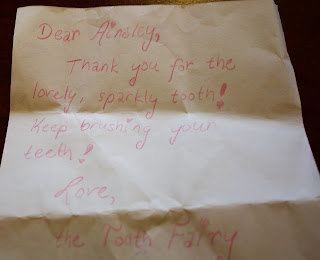 Dear Ainsley,
Thank you for the
lovely, sparkly tooth!
Keep brushing your
teeth!
Love,
the Tooth Fairy